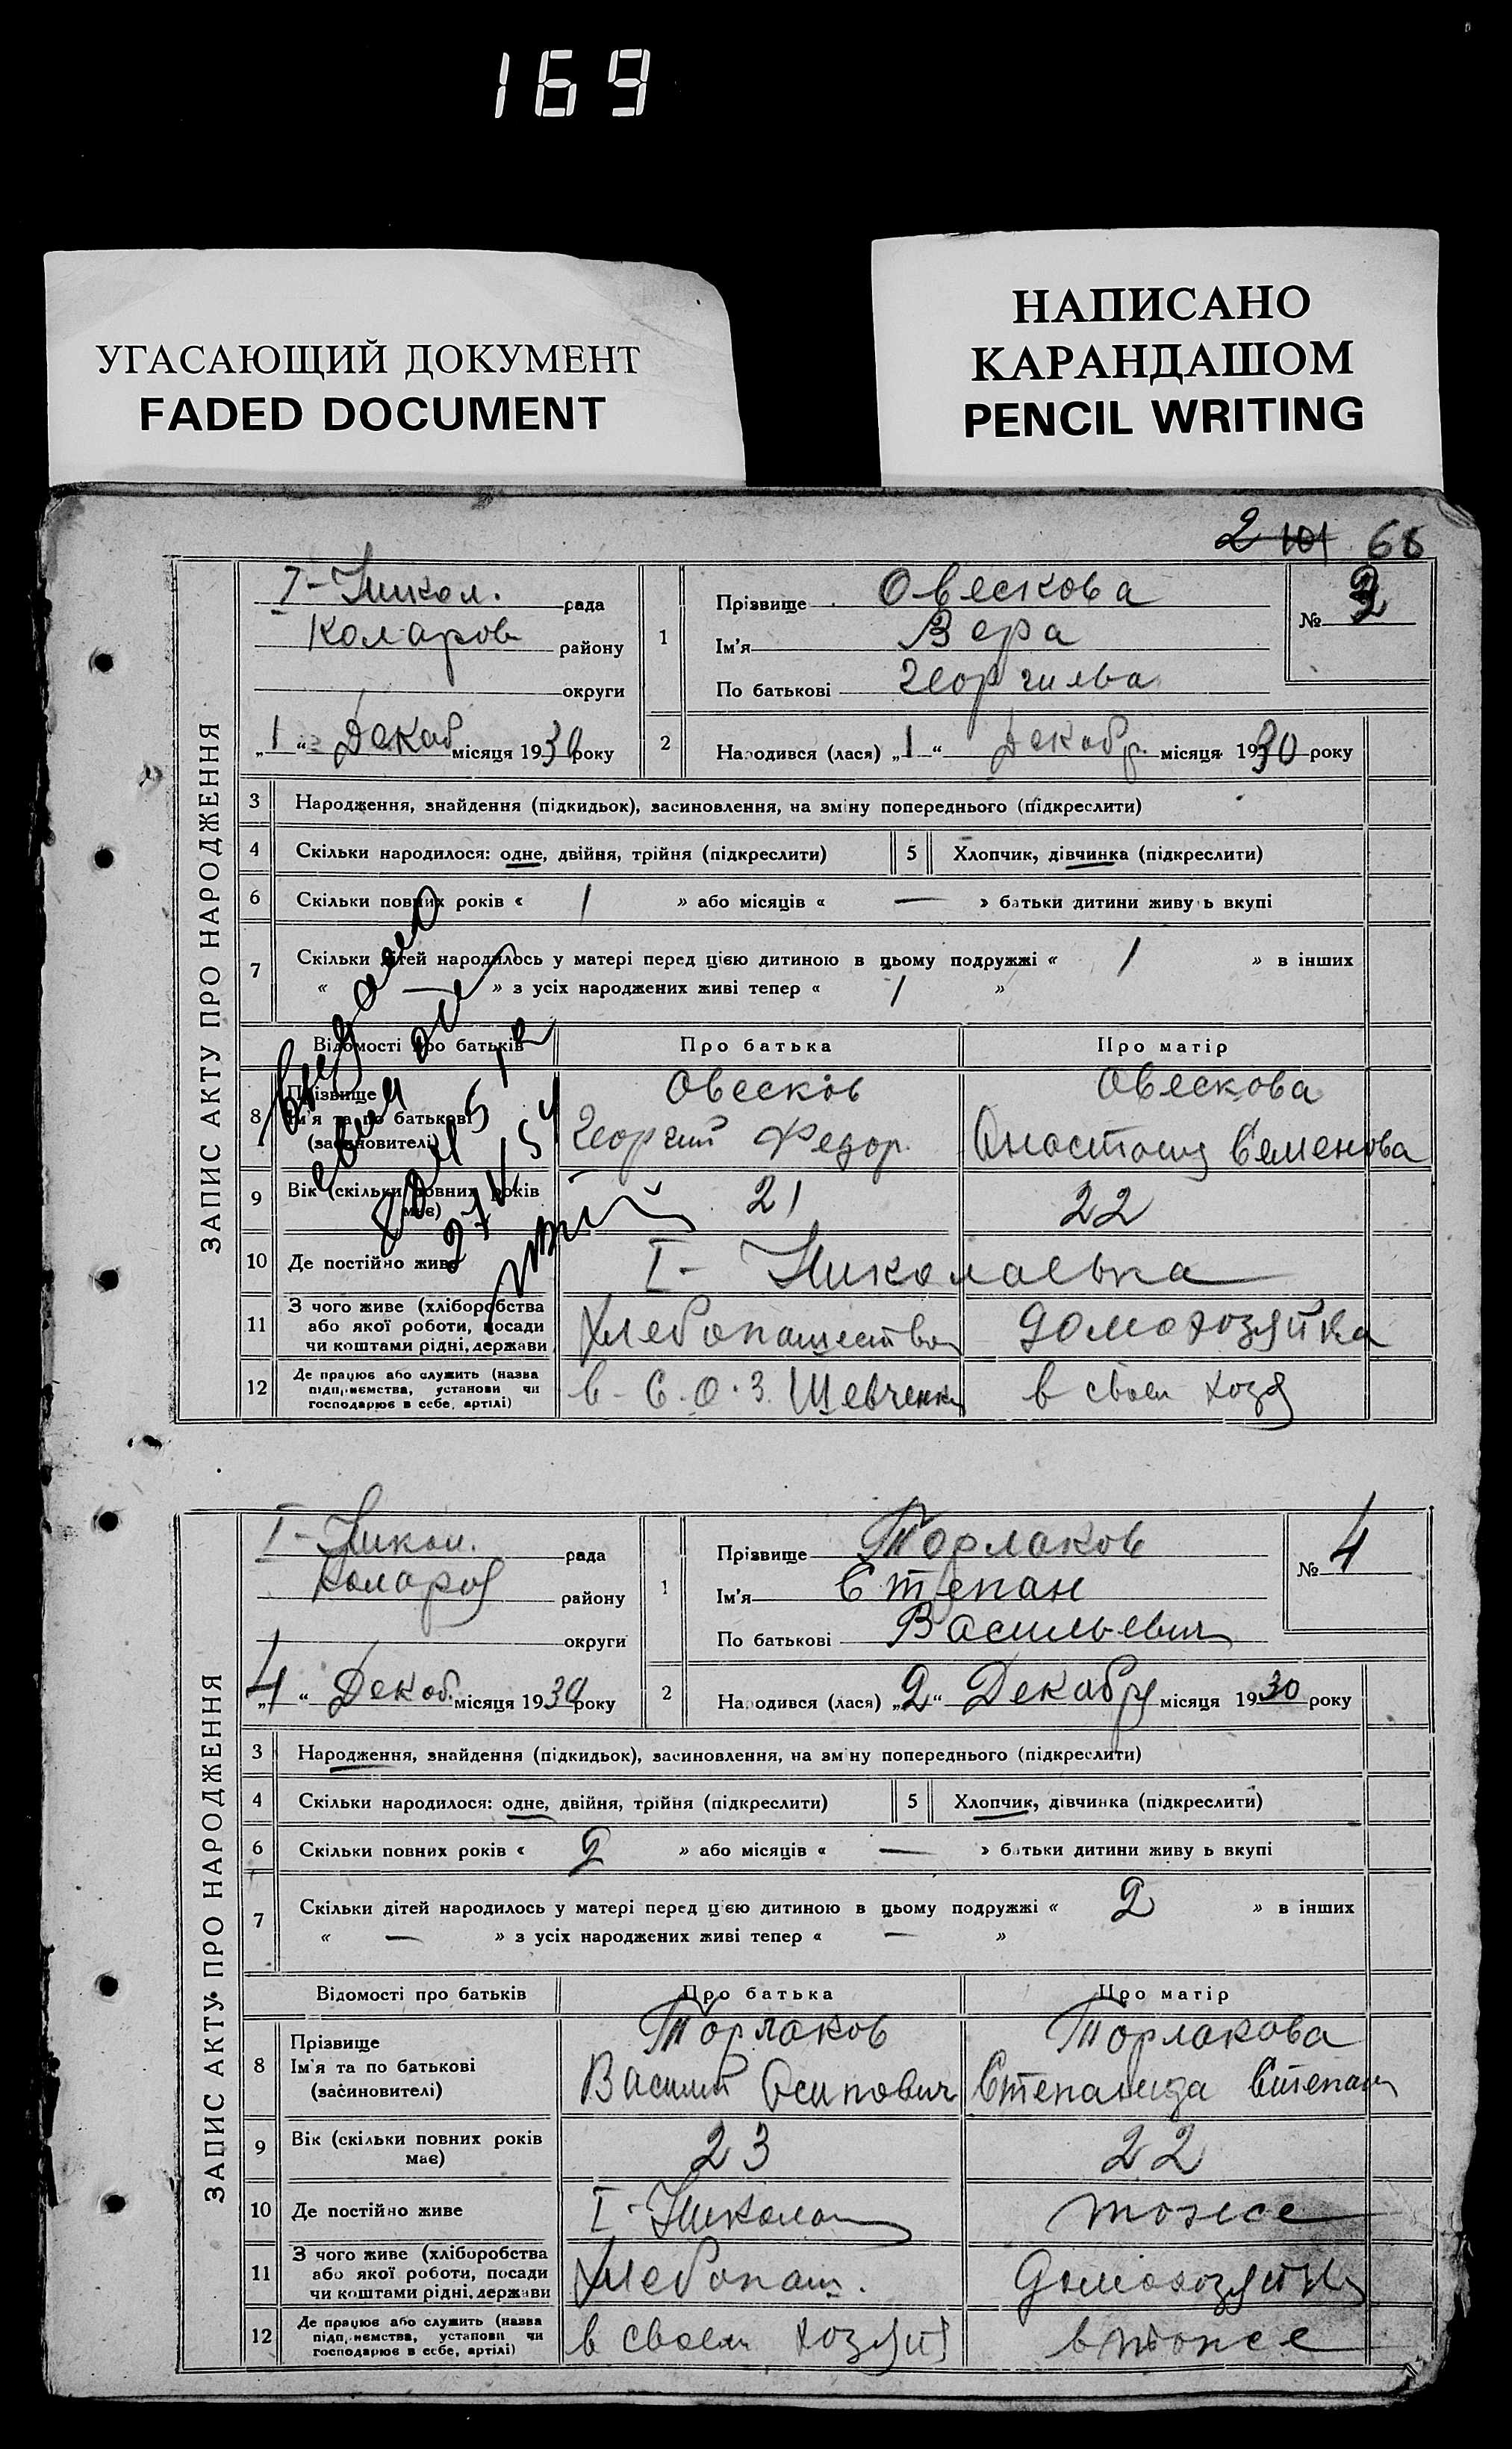 169
УГАСАЮЩИЙ ДОКУМЕНТ
FADED DOCUMENT
НАПИСАНО
КАРАНДАШОМ
PENCIL WRITING
2 101 66
ЗАПИС АКТУ ПРО НАРОДЖЕННЯ
I - Никол. рада
Коларов району
округи
„1“ Декаб місяця 1930 року
1
Прізвище Овескова
Ім'я Вера
По батькові Георгиева
№ 3
2 Народився (лася) „1“ Декабр. місяця 1930 року
3 Народження, знайдення (підкидьок), засиновлення, на зміну попереднього (підкреслити)
4 Скільки народилося: одне, двійня, трійня (підкреслити) 5 Хлопчик, дівчинка (підкреслити)
6 Скільки повних років « 1 » або місяців « — » батьки дитини живуть вкупі
7 Скільки дітей народилось у матері перед цією дитиною в цьому подружжі « 1 » в інших
« — » з усіх народжених живі тепер « 1 »
Відомості про батьків Про батька Про матір
8 Прізвище Овесков Овескова
Ім'я та по батькові Георгий Федор. Анастасия Семенова
(засиновителі)
9 Вік (скільки повних років має) 21 22
10 Де постійно живе I - Николаевка
11 З чого живе (хліборобства
або якої роботи, посади Хлебопашество домохозяйка
чи коштами рідні, держави
12 Де працює або служить (назва
підприємства, установи чи в - С.О.З. Шевченки в своем хозя
господарює в себе, артілі)
ЗАПИС АКТУ ПРО НАРОДЖЕННЯ
I - Никол. рада
Колар району
округи
„4“ Декаб. місяця 1930 року
1
Прізвище Торлаков
Ім'я Степан
По батькові Васильевич
№ 4
2 Народився (лася) „2“ Декабря місяця 1930 року
3 Народження, знайдення (підкидьок), засиновлення, на зміну попереднього (підкреслити)
4 Скільки народилося: одне, двійня, трійня (підкреслити) 5 Хлопчик, дівчинка (підкреслити)
6 Скільки повних років « 2 » або місяців « — » батьки дитини живуть вкупі
7 Скільки дітей народилось у матері перед цією дитиною в цьому подружжі « 2 » в інших
« — » з усіх народжених живі тепер « — »
Відомості про батьків Про батька Про матір
8 Прізвище Торлаков Торлакова
Ім'я та по батькові Василий Осипович Степанида Степан
(засиновителі)
9 Вік (скільки повних років має) 23 22
10 Де постійно живе I - Никола тоже
11 З чого живе (хліборобства
або якої роботи, посади Хлебопаш. Домохозяйка
чи коштами рідні, держави
12 Де працює або служить (назва
підприємства, установи чи в своем хозяй в тоже
господарює в себе, артілі)